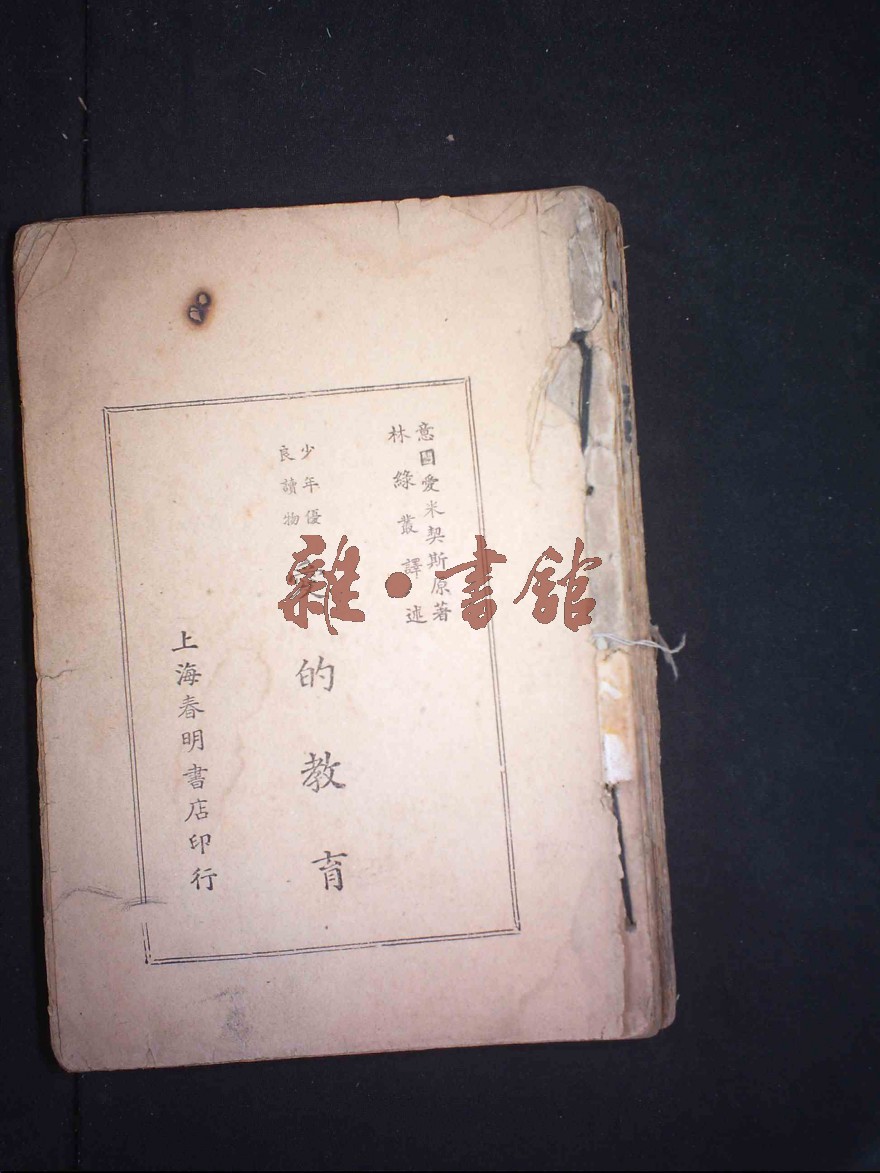 意國愛米契斯原著
林綠叢譯述
少年優
良讀物
愛的教育
上海春明書店印行
雜·書館